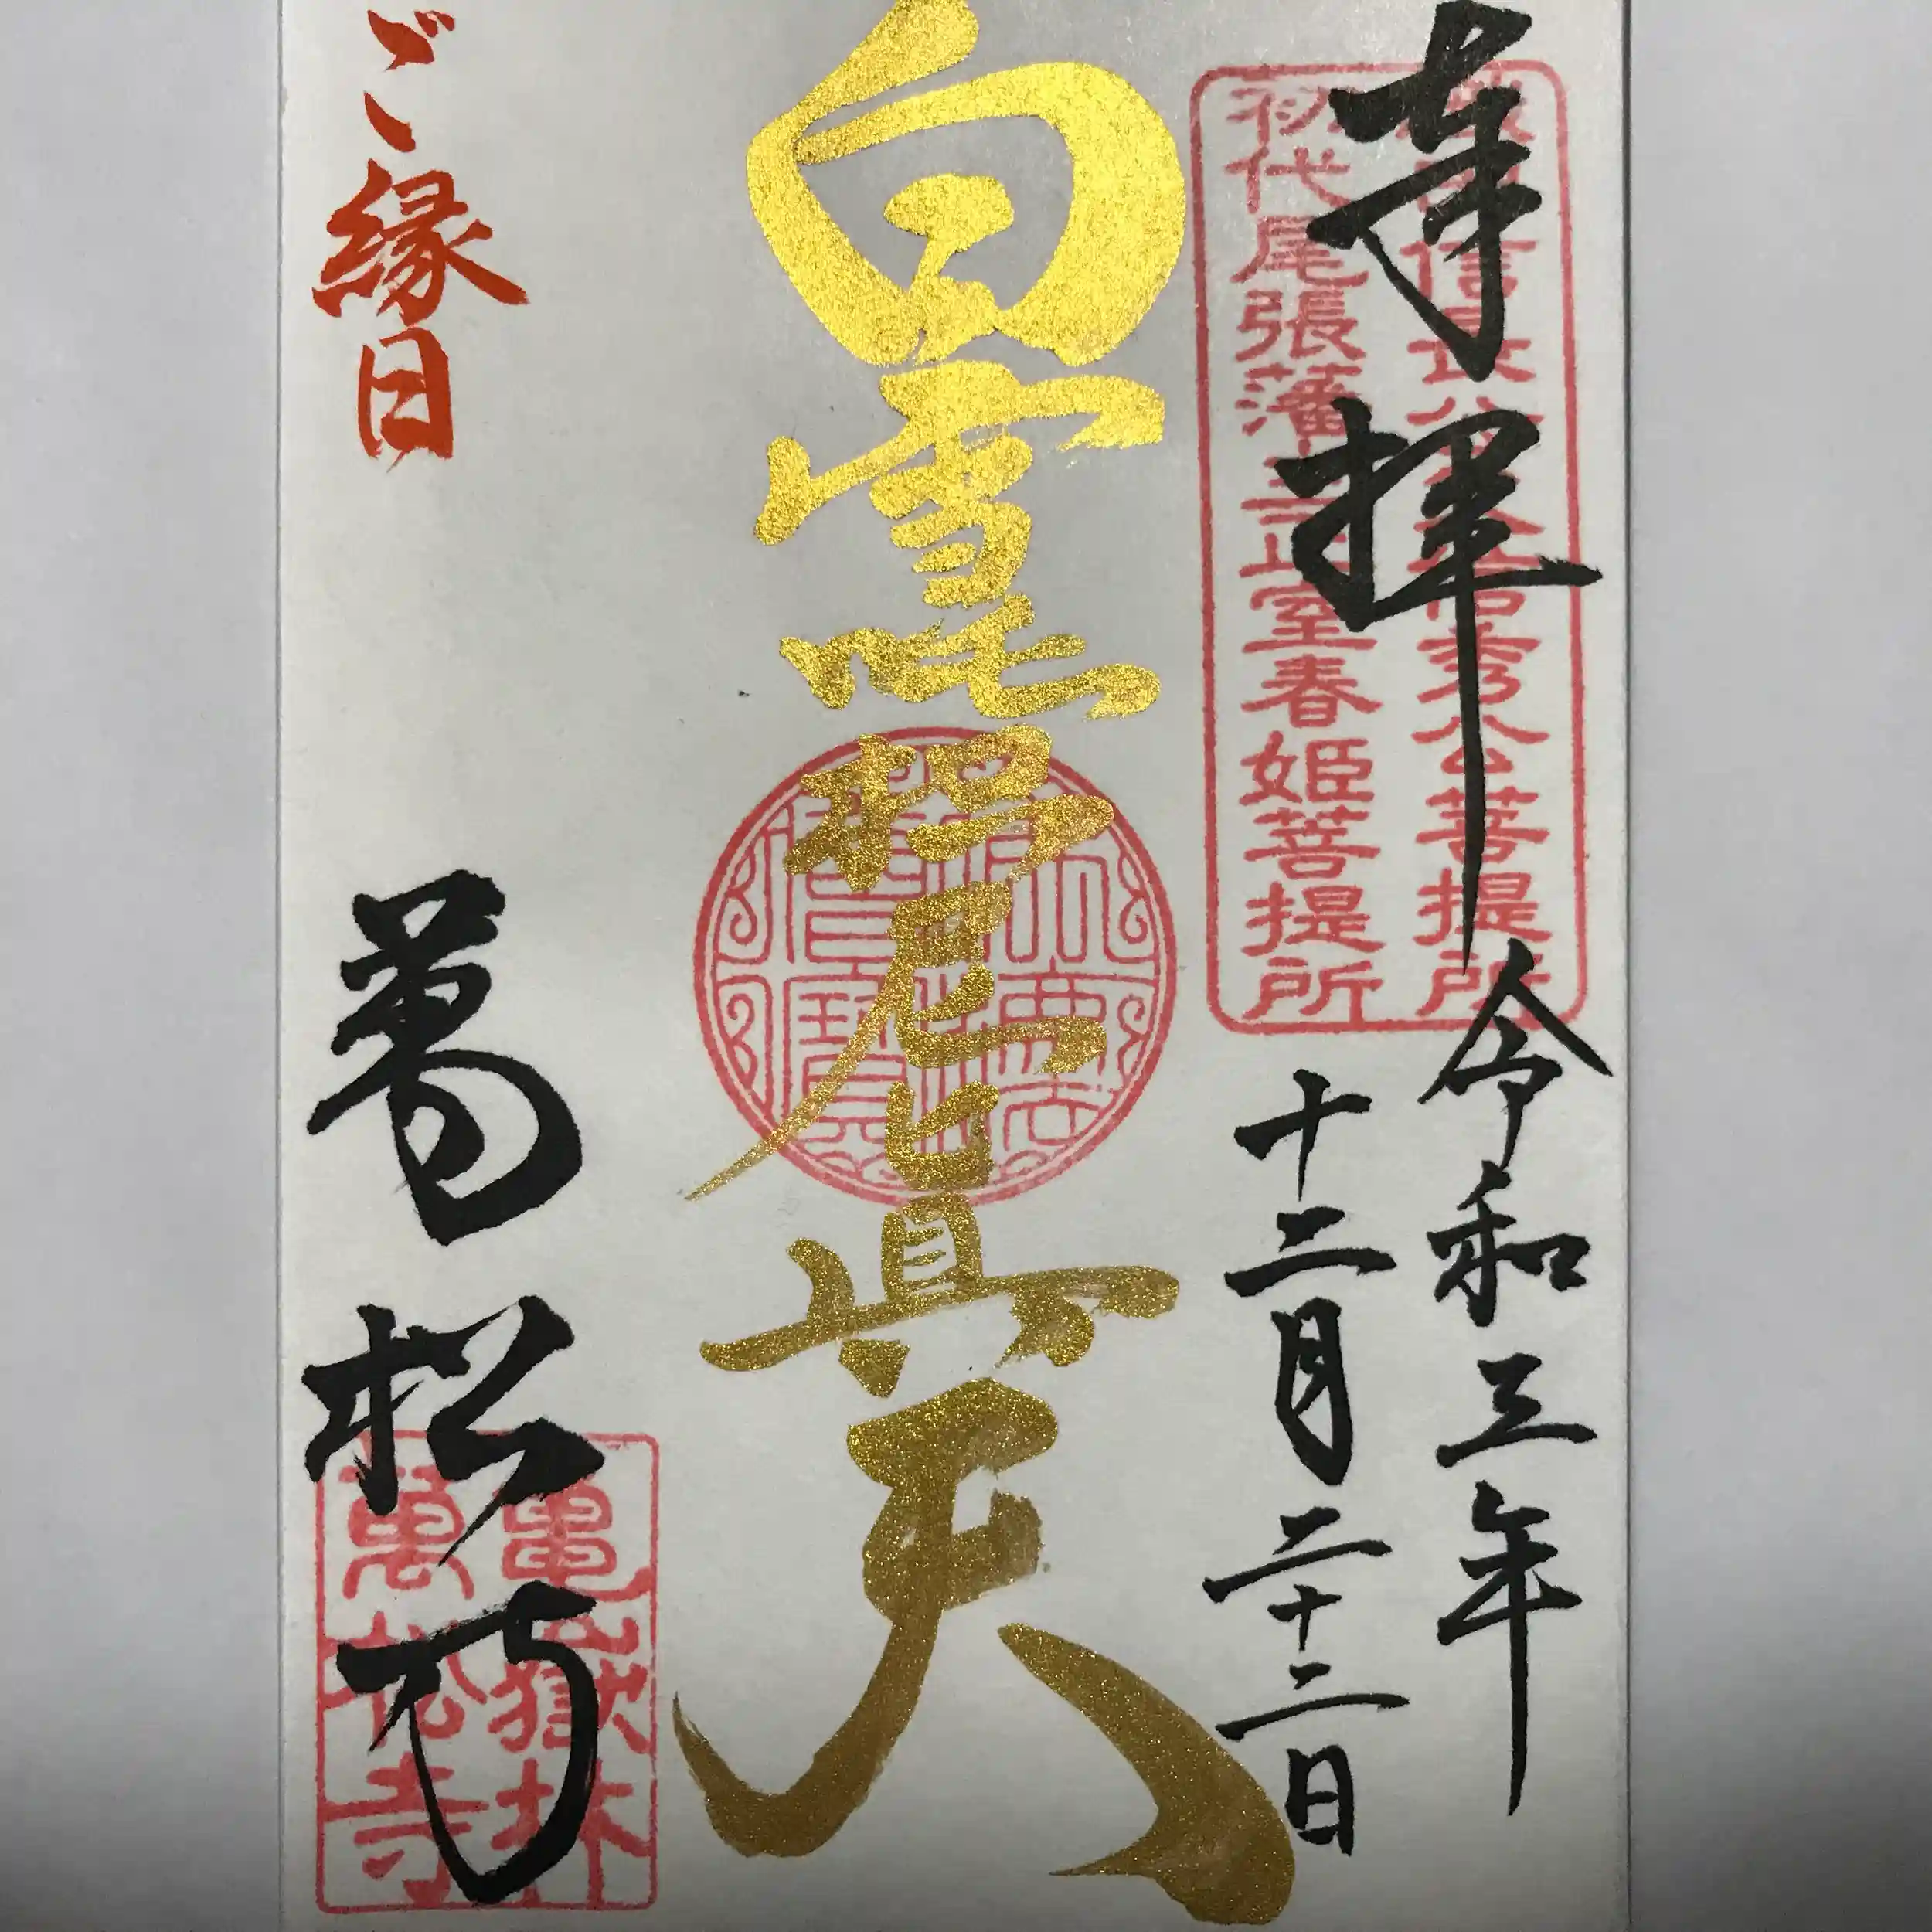 奉拝
令和三年
十二月二十二日
織田信長公父信秀公菩提所
初代尾張藩主正室春姫菩提所
白雪稲荷真天
ご縁日
萬松寺
亀嶽林
萬松寺